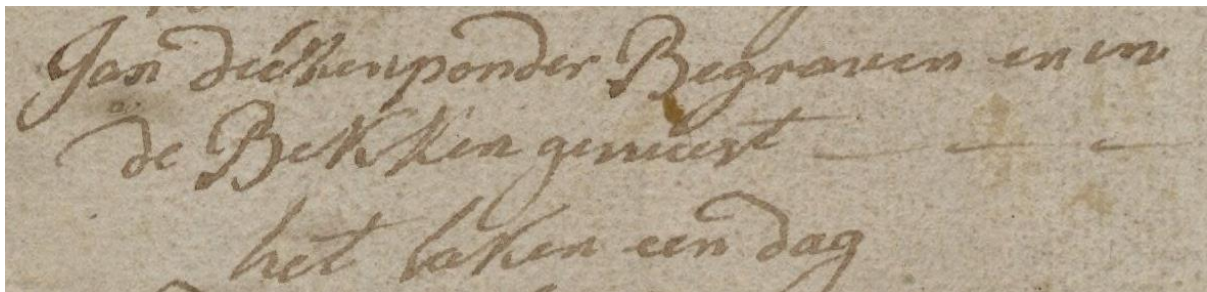 Jan dickenponder Begraven en in
de Bekken geweest - - -
het laken een dag